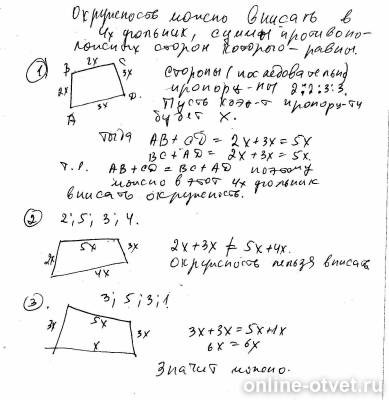 Окружность можно вписать в
4х угольник, суммы противопо-
ложных сторон которого - равны.
① B 2x C Стороны (последовательно)
2x 3x пропорц-ны 2:2:3:3.
A 3x D. Пусть коэф-т пропорц-ти
будет x.
Тогда
AB + CD = 2x+3x = 5x
BC + AD = 2x+3x = 5x.
Т.к. AB+CD = BC+AD поэтому
можно в этот 4х угольник
вписать окружность.
② 2; 5; 3; 4.
5x
2x 3x 2x+3x ≠ 5x+4x.
4x Окружность нельзя вписать
③. 3; 5; 3; 1
3x 5x 3x 3x+3x = 5x+1x
x 6x = 6x
Значит можно.
online-otvet.ru